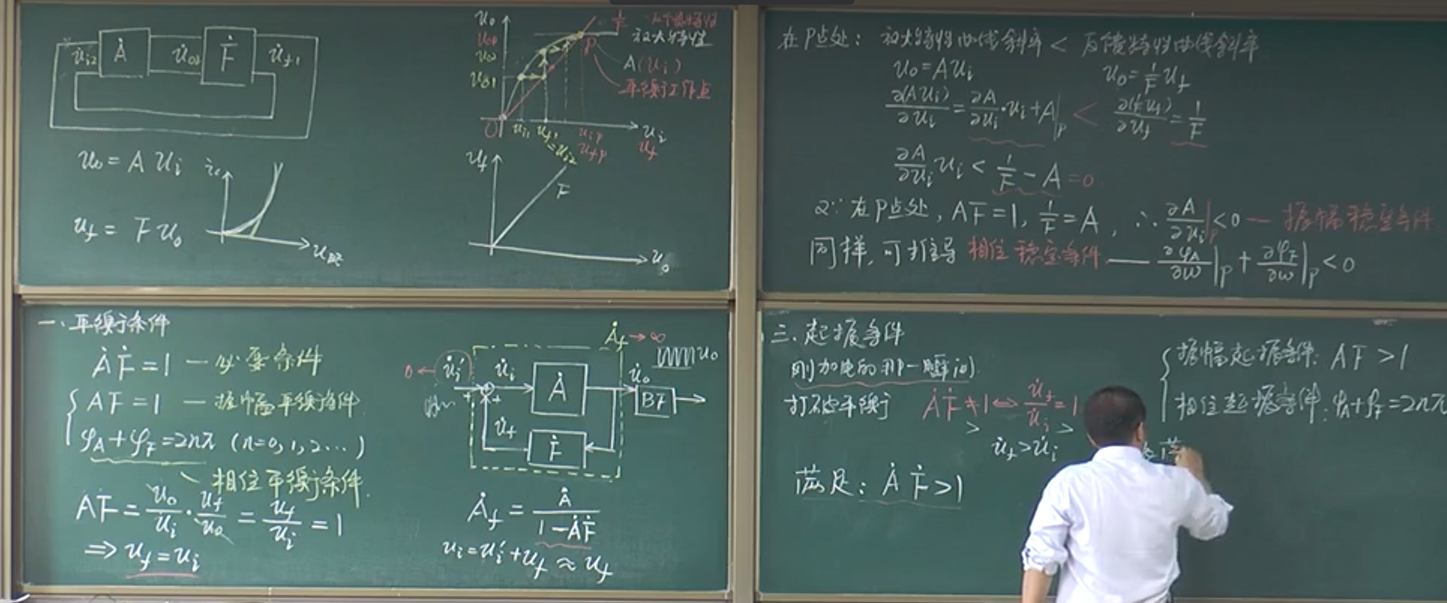 u̇i2 Ȧ u̇02 Ḟ u̇f1
u0 = A ui
uf = F u0
ic
uBE
u0
放大特性
A(ui)
平衡工作点
P
u02
u01
O ui1 uf1 uip ui
=ui2 ufp uf
uf
F
u0
在P点处: 放大特性曲线斜率 < 反馈特性曲线斜率
u0=Aui u0=1/F uf
∂(Aui)/∂ui = ∂A/∂ui·ui+A|p < ∂(1/F uf)/∂uf = 1/F
∂A/∂ui ui < 1/F − A =0
又∵在P点处, AF=1, 1/F=A, ∴ ∂A/∂ui|p<0 — 振幅稳定条件
同样, 可推导相位稳定条件 — ∂φA/∂ω|p + ∂φF/∂ω|p <0
一、平衡条件
ȦḞ=1 — 必要条件
AF=1 — 振幅平衡条件
φA+φF=2nπ (n=0,1,2…)
相位平衡条件
AF= u0/ui · uf/u0 = uf/ui = 1
⇒ uf=ui
Ȧf→∞
0← u̇i' u̇i Ȧ u̇0 BF u0
u̇f Ḟ
Ȧf = Ȧ/(1−ȦḞ)
ui=ui'+uf≈uf
三、起振条件
刚加电的那一瞬间
打破平衡 ȦḞ≠1⇔u̇f/u̇i=1
> >
u̇f>u̇i
满足: ȦḞ>1
振幅起振条件: AF>1
相位起振条件: φA+φF=2nπ